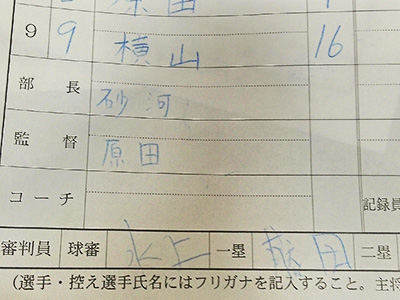 9 9 横山 16
部長 砂河
監督 原田
コーチ 記録員
審判員 球審 水上 一塁 田 二塁
(選手・控え選手氏名にはフリガナを記入すること。主将